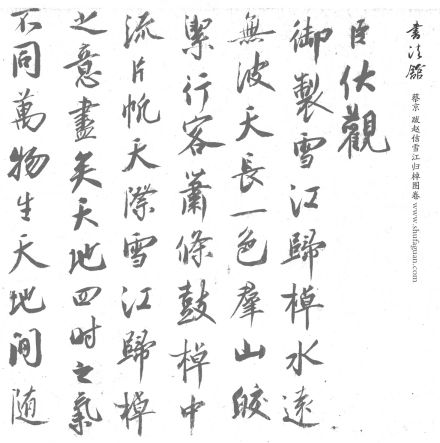 書法館
蔡京 跋赵佶雪江归棹图卷 www.shufaguan.com
臣伏觀
御製雪江歸棹水遠
無波天長一色羣山皎
潔行客蕭條鼓棹中
流片帆天際雪江歸棹
之意盡矣天地四时之氣
不同萬物生天地間随